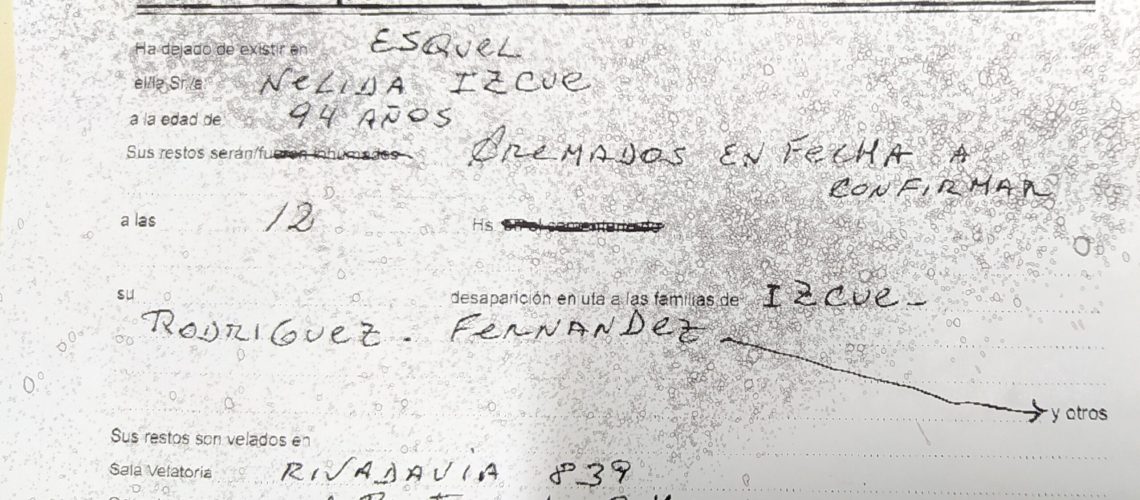 Ha dejado de existir en ESQUEL
el/la Sr./a NELIDA IZCUE
a la edad de 94 AÑOS
Sus restos serán/fueron inhumados CREMADOS EN FECHA A
CONFIRMAR
a las 12 Hs
su desaparición enluta a las familias de IZCUE -
RODRIGUEZ . FERNANDEZ
y otros
Sus restos son velados en
Sala Velatoria RIVADAVIA 839